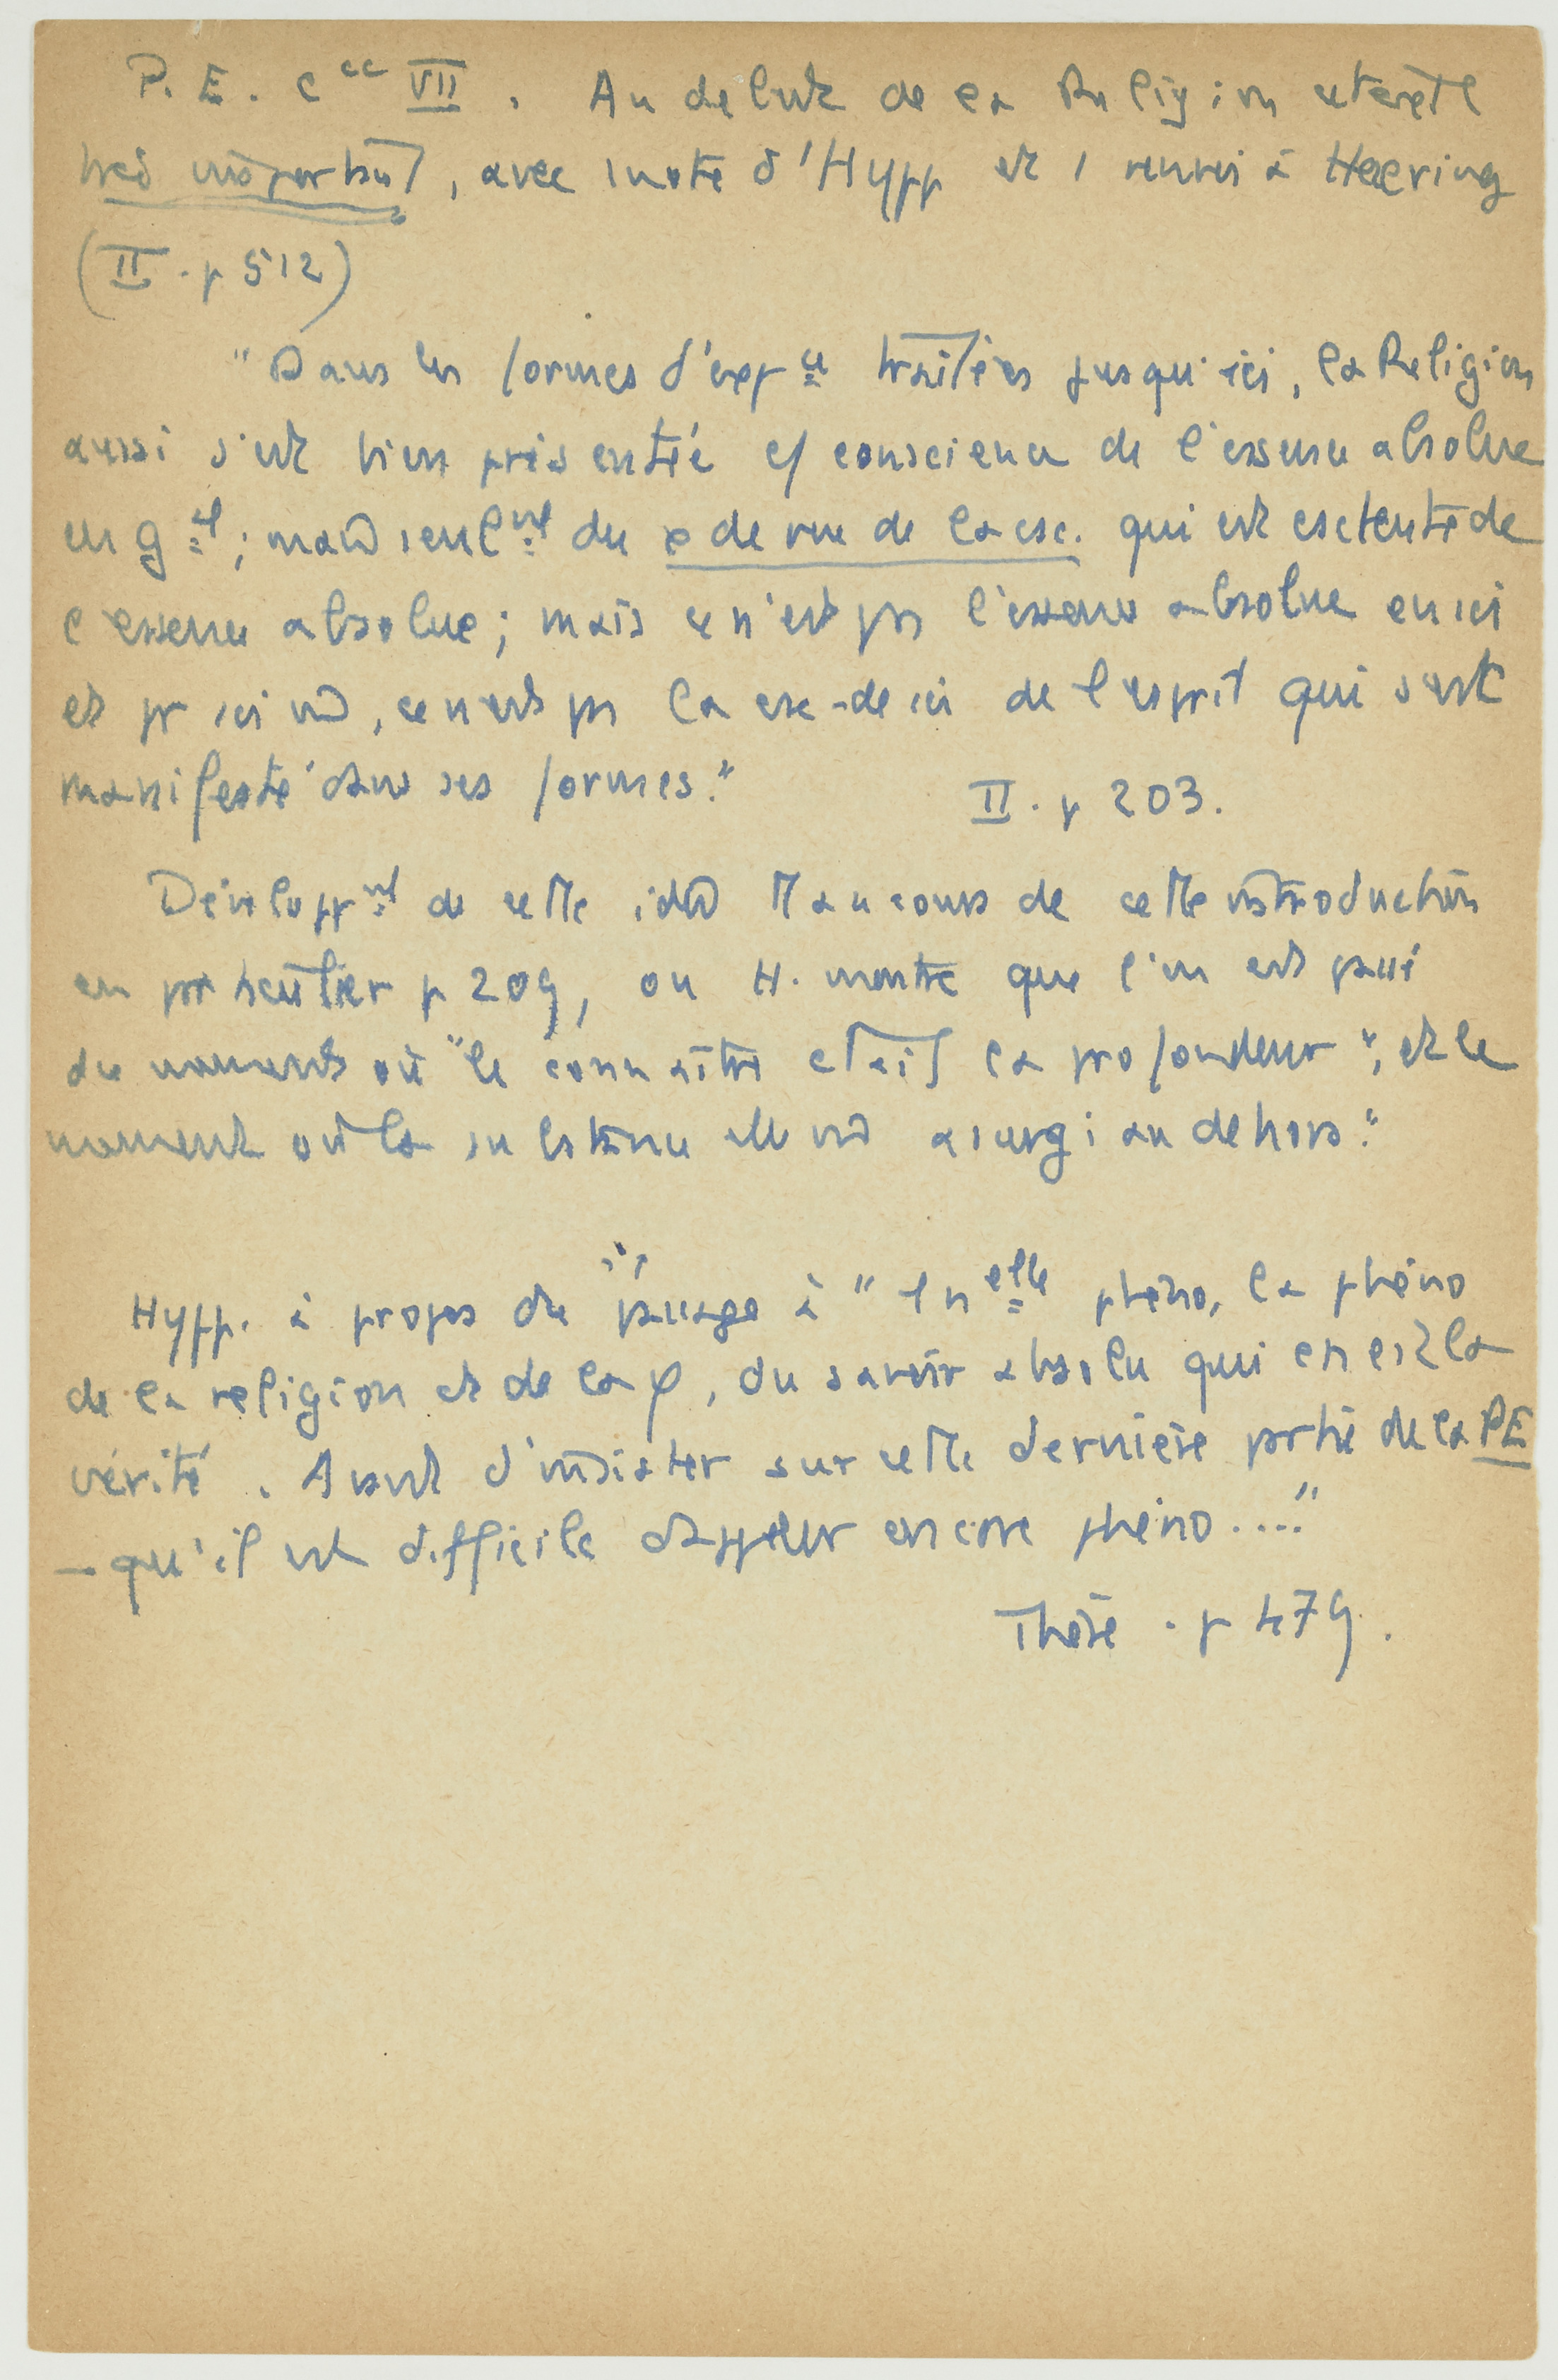 P. E. C cc VII. Au debut de la Religion
très important, avec 1 note d'Hypp et 1 renvoi à Haering
(II. p 512)
"Dans les formes d'exp ce traitées jusqu'ici, la Religion
aussi s'est bien présentée c/ conscience de l'essence absolue
en g al; mais seul mt du p de vue de la csc. qui est csctente de
l'essence absolue; mais ce n'est pas l'essence absolue en soi
et pr soi m̂, ce n'est pas la csc-de soi de l'esprit qui s'est
manifesté dans ses formes."
II. p 203.
Développ mt de cette idée au cours de cette introduction
en particulier p 209, ou H. montre que l'on est passé
du moment où "le connaître était la profondeur", et le
moment où la substance elle m̂ a surgi au dehors."
Hypp. à propos du passage à "1 n elle phéno, la phéno
de la religion et de la φ, du savoir absolu qui en est la
vérité. Avant d'insister sur cette dernière partie de la PE
- qu'il est difficile d'appeler encore phéno...."
Thèse. p 479.